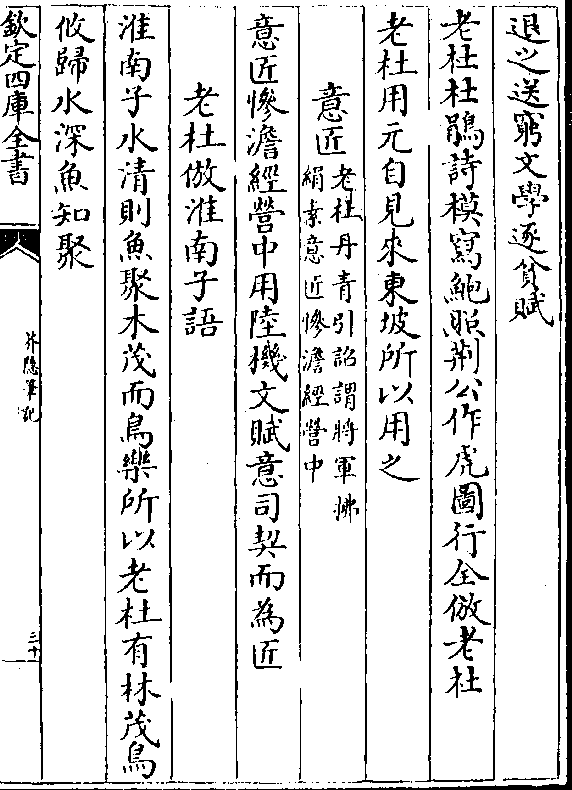 退之送窮文學逐貧賦
老杜杜鵑詩模寫鮑照荆公作虎圖行全倣老杜
老杜用元自見來東坡所以用之
意匠老杜丹青引詔謂將軍拂
絹素意匠慘澹經營中
意匠慘澹經營中用陸機文賦意司契而為匠
老杜倣淮南子語
淮南子水清則魚聚木茂而鳥樂所以老杜有林茂鳥
攸歸水深魚知聚
欽定四庫全書
芥隱筆記
三十一